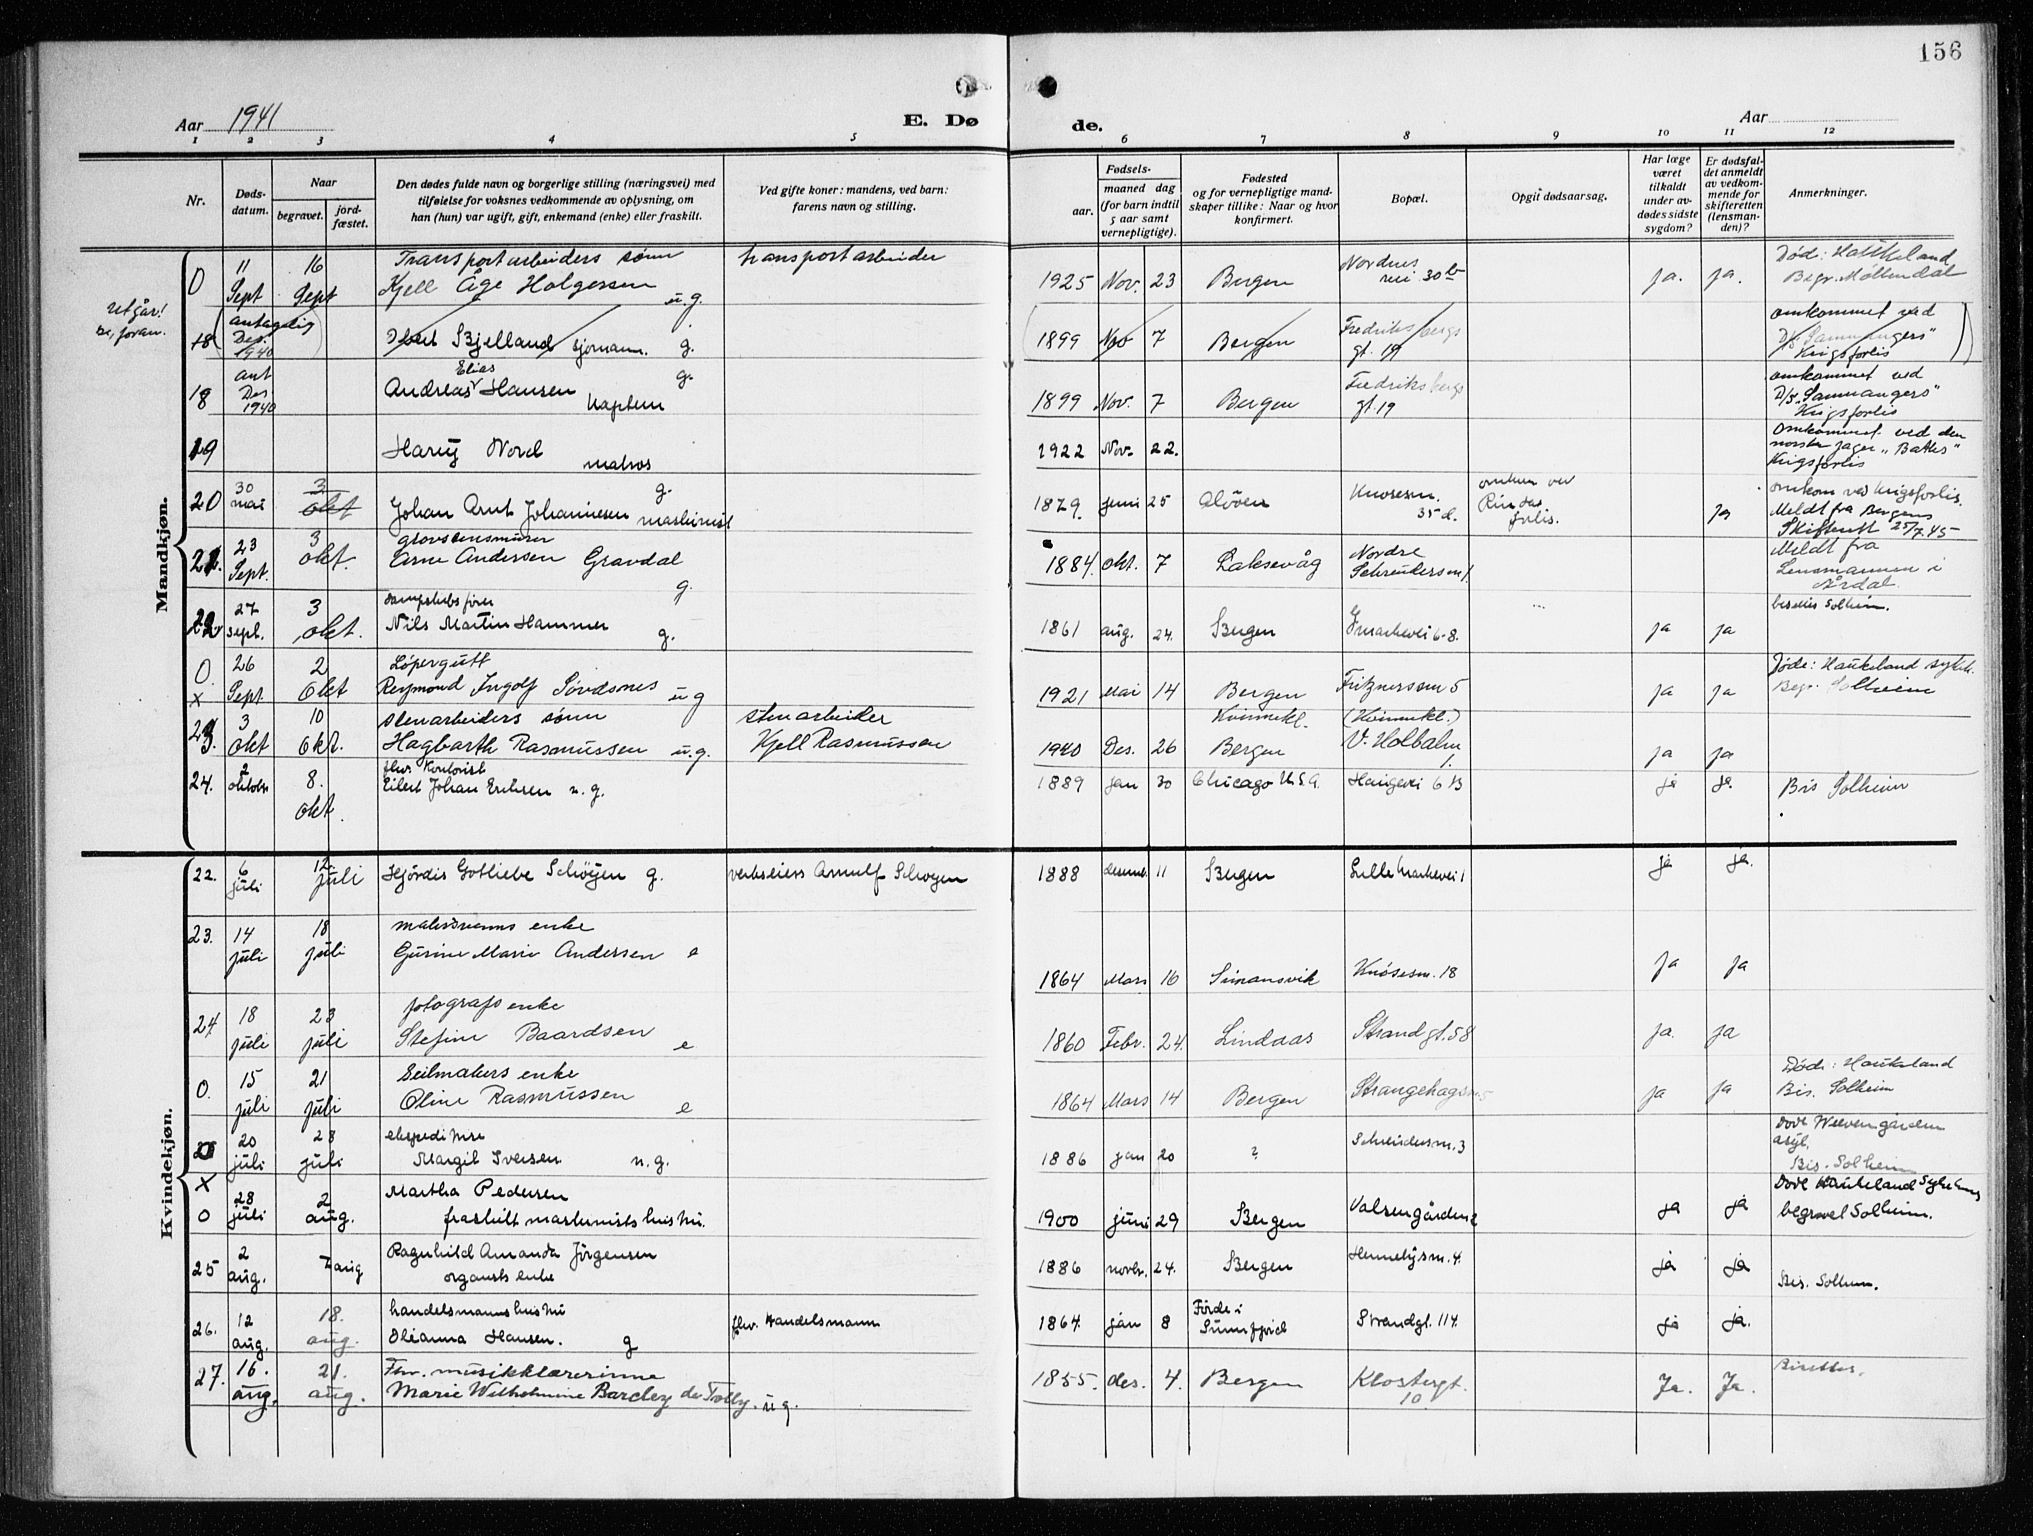 156
Aar 1941
E. Dø
de.
Aar
1 2 3 4 5 6 7 8 9 10 11 12
Nr.
Døds-
datum.
Naar
begravet.
jord-
fæstet.
Den dødes fulde navn og borgerlige stilling (næringsvei) med
tilføielse for voksnes vedkommende av oplysning, om
han (hun) var ugift, gift, enkemand (enke) eller fraskilt.
Ved gifte koner: mandens, ved barn:
farens navn og stilling.
Fødsels-
aar.
maaned dag
(for barn indtil
5 aar samt
vernepligtige).
Fødested
og for vernepligtige mand-
skaper tillike: Naar og hvor
konfirmert.
Bopæl.
Opgit dødsaarsag.
Har læge
været
tilkaldt
under av-
dødes sidste
sygdom?
Er dødsfal-
det anmeldt
av vedkom-
mende for
skifteretten
(lensman-
den)?
Anmerkninger.
Mandkjøn.
0 11 16 Transportarbeiders sønn transportarbeider Nordnes Død: Haukeland
Sept Sept Kjell Åge Holgersen u.g. 1925 Nov. 23 Bergen vei 30 b ja. ja. Begr. Møllendal
utgår!
se, foran.
antagelig omkommet ved
18 Des. Bjelland sjømann. g. 1899 Nov 7 Bergen Fredriksbergs D/S "Sammangers"
1940 gt. 19 Krigsforlis
ant Elias g. Fredriksbergs omkommet ved
18 Des Andreas Hansen Kaptein 1899 Nov. 7 Bergen gt. 19 D/S "Sammangers"
1940 Krigsforlis
19 Harry Nord matros 1922 Nov. 22. Omkommet ved den
norske jager "Baths"
Krigsforlis
20 30 3 g. omkom ved omkom ved Krigsforlis.
mai okt Johan Arnt Johannesen maskinist 1879. juni 25 Alvøen Knøsesm. 35 d. forlis. ja Meldt fra Bergens
Skifterett 25/7.45
21. 23 3 grovstensmurer Nordre Meldt fra
Sept. okt. Arne Andersen Gravdal g. 1884. okt. 7 Laksevåg Schreudersm 1. Lensmannen i
Årdal.
22 27 3 dampskibsfører bisettes Solheim.
sept. okt. Nils Martin Hammer g. 1861 aug. 24. Bergen markevei 6-8. ja ja
0. 26 2 Løpergutt Døde: Haukeland sykeh.
x Sept Okt Reymond Ingolf Søvdsnes u g 1921 Mai 14 Bergen Fritznersm 5 ja ja Begr. Solheim
23. 3 10 stenarbeiders sønn stenarbeider Kvinnekl. (Kvinnekl.)
okt okt. Hagbarth Rasmussen u.g. Kjell Rasmussen 1940 Des. 26 Bergen V. Holbalm 1. ja ja
24. 2 8. fhv. Kontorist
oktober okt. Eilert Johan Eriksen u. g. 1889 jan 30 Chicago U.S.A. Haugevei 6 B ja ja. Bis Solheim
Kvindekjøn.
22. 6 12
juli juli Hjördis Gotliebe Schöyen g. verkseiers Arnulf Schöyen 1888 desemb. 11 Bergen Lille Markevei 1 ja ja.
23. 14 18 malersvenns enke
juli juli Gurine Marie Andersen e 1864 Mars 16 Simansvik Knösesm. 18 ja ja
24 18 23 fotografs enke
juli juli Stefine Baardsen e 1860 Febr. 24. Lindaas Strandgt. 58 ja. ja
0. 15 21 Seilmakers enke Døde: Haukeland
juli juli Oline Rasmussen e 1864 Mars 14 Bergen Strangehagen 5 ja ja Bis. Solheim
20 28 ekspeditrise
juli juli Margit Iversen u.g. 1886 jan 20 ? Schreudersm. 3 asyl.
Bis. Solheim
x 28 2 Martha Pedersen Død Haukeland Sykehus
0 juli aug. fraskilt maskinists hustru. 1900 juni 29 Bergen Valsengården 2 ja ja begravet Solheim.
25 2 7 aug Ragnhild Amanda Jörgensen
aug. organists enke 1886 novbr. 24. Bergen Hennebysm. 4. ja ja Bis. Solheim.
26. 12 18. handelsmanns hustru fhv. Handelsmann Förde i
aug. aug. Olianna Hansen. g 1864. jan 8 Sunnfjord Strandgt. 114. ja ja.
27. 16. 21. Fhv. musikklærerinne Bisettes.
aug. aug. Marie Wilhelmine Barcley de Tolly. u.g. 1855. des. 4. Bergen Klostergt. 10. Ja. Ja.